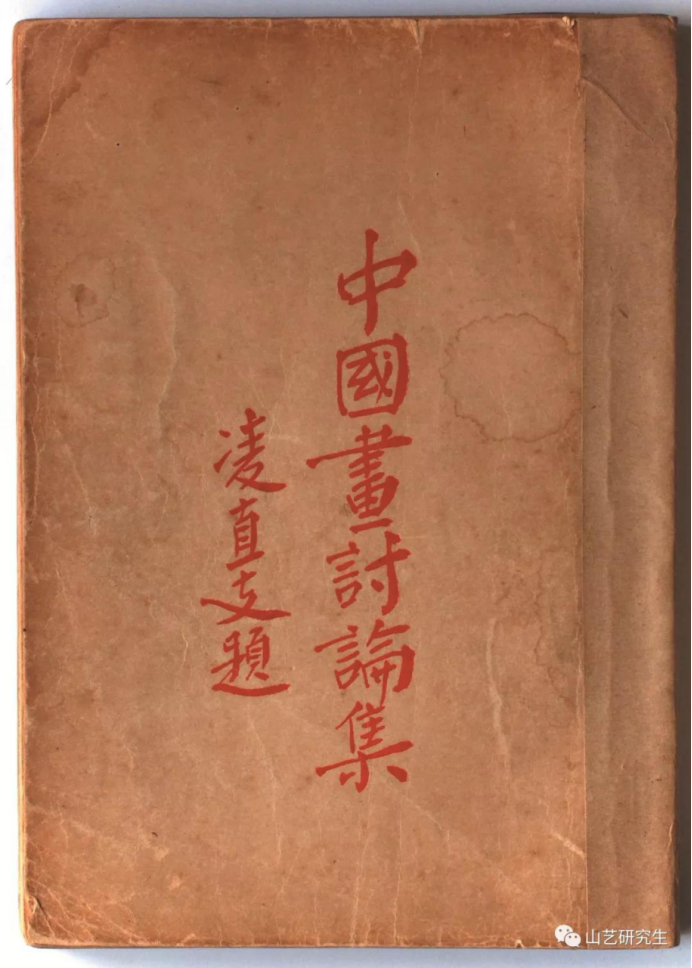 中國畫討論集
凌直支題
山艺研究生